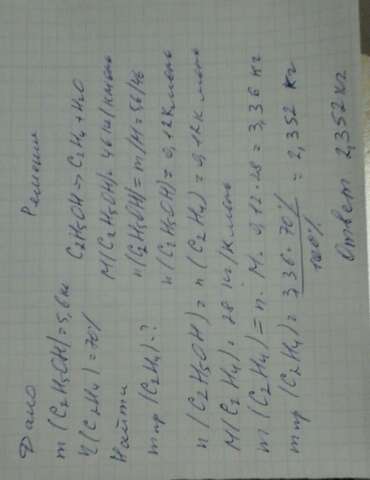 Дано
m (C2H5OH) = 5,6 кг
η (C2H4) = 70%
Найти
mпр (C2H4) - ?
Решение
C2H5OH → C2H4 + H2O
M(C2H5OH) = 46 кг/кмоль
n(C2H5OH) = m/M = 5,6/46
n (C2H5OH) = 0,12 кмоль
n (C2H5OH) = n (C2H4) = 0,12 кмоль
M (C2H4) = 28 кг/кмоль
m (C2H4) = n · M = 0,12 · 28 = 3,36 кг
mпр (C2H4) = 3 36 · 70% / 100% = 2,352 кг
Ответ 2,352 кг